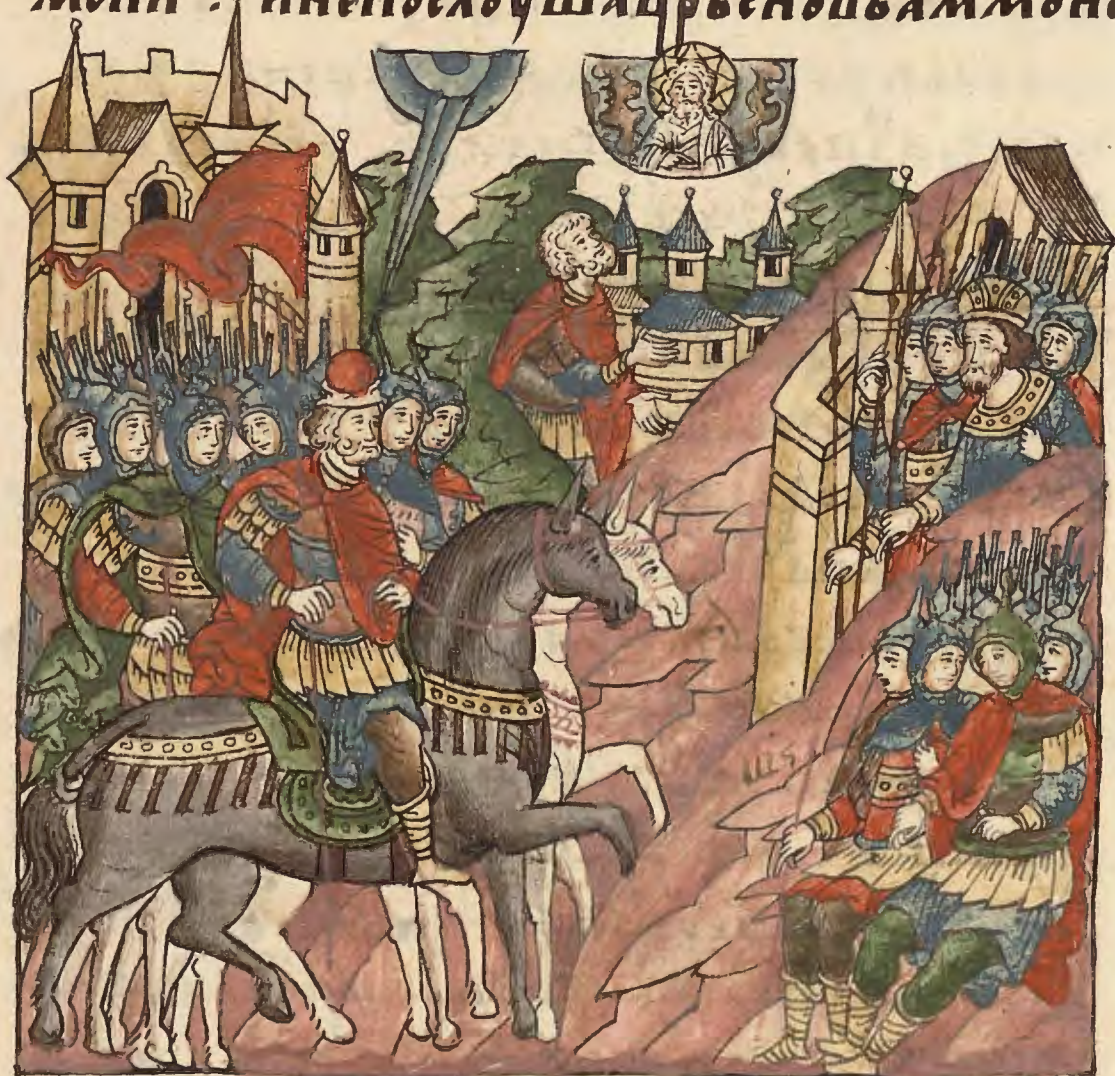 мони · инепослоушацр҃ьсновъаммоно